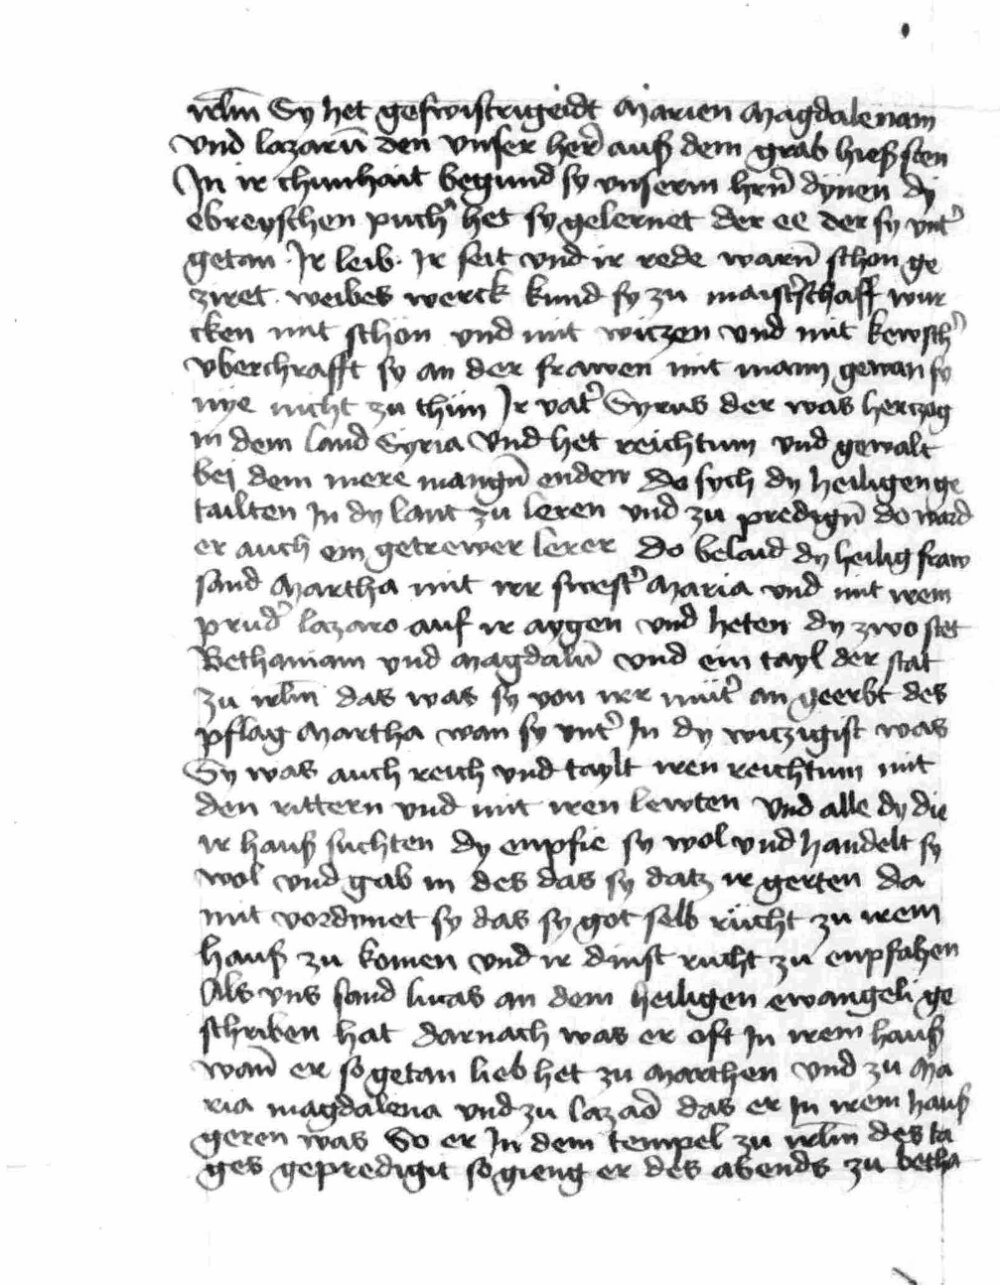 irlm̄ Sy het geswistrigeidt Marien Magdalenam
vnd lazarū den vnser her̄ auß dem grab hieß sten
In ir chinthait begund sy vnserm hrn̄ dynen dy
ebreyschen puch̓ het sy gelernet der ee der sy vnt̓
getan · Ir leib · Ir seit vnd ir rede warn̄ schon ge
ziret · weibes werck kund sy zu maist̓schafft wur
cken mit schön vnd mit wiczen vnd mit kewsch̓
vberchrafft sy an der frawen mit mann gewan sy
nÿe nicht zu thün Ir vat̓ Syrus der was herczog
in dem land Syria vnd het reichtum vnd gewalt
bei dem mere mangn̄ enden do sych dy heiligen ge
tailten In dy lant zu leren vnd zu predign̄ do ward
er auch ein getrewer lerer do belaid dy heilig fraw
sand Martha mit irr swest̓ Maria vnd mit irem
prud̓ lazaro auf ir aygen vnd heten dy zwo stet
Bethaniam vnd Magdalū vnd ein tayl der stat
zu irlm̄ das was sy von irr mut̓ an geerbt des
pflag Martha wan sy vnt̓ In dy wiczigist was
Sy was auch reich vnd taylt iren reichtum mit
den rittern vnd mit iren lewten vnd alle dy die
ir hauß suchten dy enpfie sy wol vnd handelt sy
wol vnd gab in des das sy datz ir gerten da
mit vordinet sy das sy got selb rücht zu irem
hauß zu komen vnd ir dinst rucht zu enpfahen
Als vns sand lucas an dem heiligen ewangeli ge
schriben hat darnach was er oft In irem hauß
wan̄ er so getan lieb het zu Marthen vnd zu Ma
ria magdalena vnd zu lazaro das er In irem hauß
geren was So er In dem tempel zu irlm̄ des ta
ges gepredigit so gieng er des abends zu betha